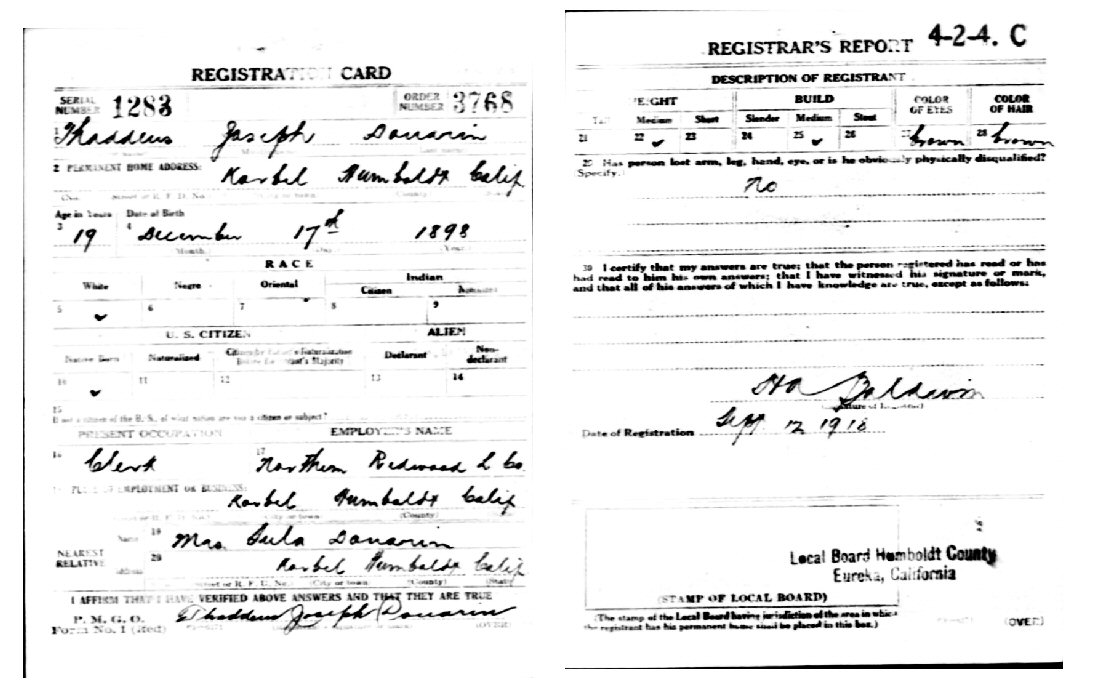 REGISTRATION CARD
SERIAL NUMBER 1283 ORDER NUMBER 3768
1 Thaddeus Joseph Donarin
2 PERMANENT HOME ADDRESS:
Korbel Humboldt Calif
(No.) (Street or R. F. D. No.) (City or town) (County) (State)
Age in Years Date of Birth
3 19 4 December 17th 1898
Month. Day. Year.
RACE
White Negro Oriental Indian
Citizen
5 ✓ 6 7 8 9
U. S. CITIZEN ALIEN
Native Born Naturalized Citizen by Father's Naturalization Before Registrant's Majority Declarant Non-declarant
10 ✓ 11 12 13 14
15
If not a citizen of the U. S., of what nation are you a citizen or subject?
PRESENT OCCUPATION EMPLOYER'S NAME
16 Clerk 17 Northern Redwood L Co.
18 PLACE OF EMPLOYMENT OR BUSINESS:
Korbel Humboldt Calif
(Street or R. F. D. No.) (City or town) (County)
NEAREST RELATIVE
Name 19 Mrs. Lula Donarin
Address 20 Korbel Humboldt Calif
(Street or R. F. D. No.) (City or town) (County) (State)
I AFFIRM THAT I HAVE VERIFIED ABOVE ANSWERS AND THAT THEY ARE TRUE
P. M. G. O.
Form No. 1 (Red) Thaddeus Joseph Donarin (OVER)
REGISTRAR'S REPORT 4-2-4. C
DESCRIPTION OF REGISTRANT
HEIGHT BUILD COLOR OF EYES COLOR OF HAIR
Tall Medium Short Slender Medium Stout
21 22 ✓ 23 24 25 ✓ 26 27 brown 28 brown
29 Has person lost arm, leg, hand, eye, or is he obviously physically disqualified?
Specify.)
No
30 I certify that my answers are true; that the person registered has read or has
had read to him his own answers; that I have witnessed his signature or mark,
and that all of his answers of which I have knowledge are true, except as follows:
Baldwin
(Signature of Registrar)
Date of Registration Sept 12 1918
Local Board Humboldt County
Eureka, California
(STAMP OF LOCAL BOARD)
(The stamp of the Local Board having jurisdiction of the area in which
the registrant has his permanent home shall be placed in this box.)
(OVER)